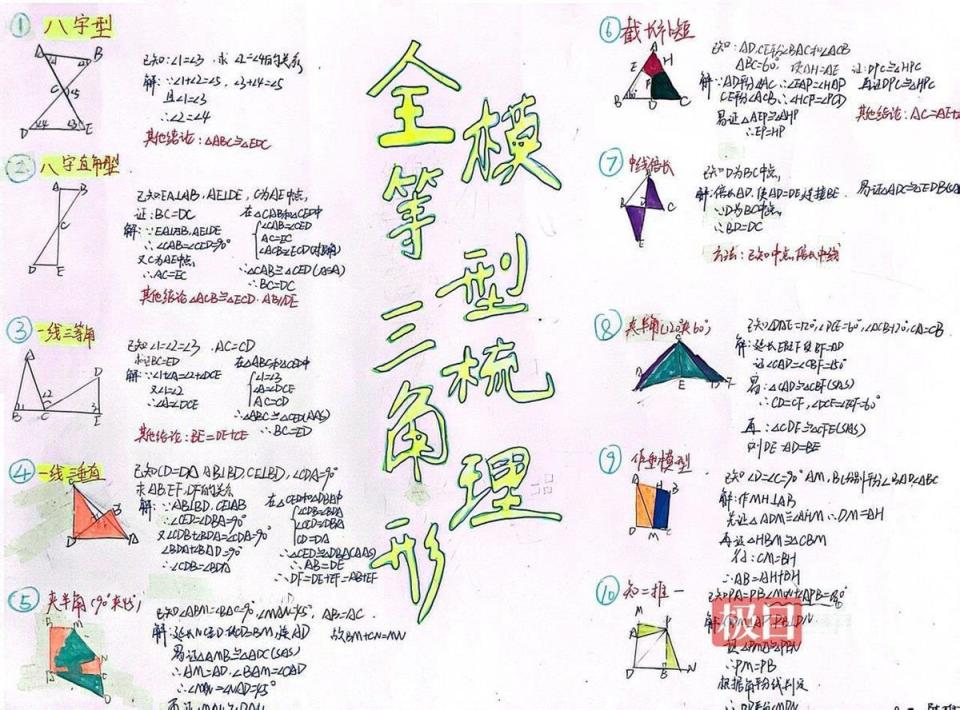 全等三角形
模型梳理
① 八字型
已知:∠1=∠3 . 求∠2=∠4的关系
解:∵∠1+∠2=∠5 , ∠3+∠4=∠5
且∠1=∠3
∴∠2=∠4
其他结论:△ABC≅△EDC
② 八字直角型
已知EA⊥AB, AE⊥DE, C为AE中点,
证:BC=DC
解:∵EA⊥AB, AE⊥DE
∴∠CAB=∠CED=90°
又C为AE中点,
∴AC=EC
在△CAB和△CED中
∠CAB=∠CED
AC=EC
∠ACB=∠ECD(对顶角)
∴△CAB≅△CED(ASA)
∴BC=DC
其他结论△ACB≅△ECD. AB∥DE
③ 一线三等角
已知∠1=∠2=∠3 . AC=CD
求证BC=ED
解:∵∠1+∠A=∠2+∠DCE
又∠1=∠2
∴∠A=∠DCE
在△ABC和△CED中
∠1=∠3
∠A=∠DCE
AC=CD
∴△ABC≅△CED(AAS)
∴BC=ED
其他结论:BE=DE+CE
④ 一线三垂直
已知CD=DA AB⊥BD, CE⊥BD, ∠CDA=90°
求AB,EF,DF的关系
解:∵AB⊥BD, CE⊥AB
∴∠CED=∠DBA=90°
又∠CDB+∠BDA=∠CDA=90°
∠BDA+∠BAD=90°
∴∠CDB=∠BDA
在△CED和△DBA中
∠CDB=∠BDA
∠CED=∠DBA
CD=DA
∴△CED≅△DBA(AAS)
∴AB=DE
∴DF=DE+EF=AB+EF
⑤ 夹半角(90°夹45°)
已知∠ABM=∠BAC=90°, ∠MAN=45°, AB=AC
解:延长NC至D, 使CD=BM, 连AD
易证△AMB≅△ADC(SAS)
∴AM=AD. ∠BAM=∠CAD
∴∠MAN=∠NAD=45°
故BM+CN=MN
⑥ 截长补短
已知:AD, CE平分∠BAC和∠ACB
∠ABC=60°, 使AH=AE 证:DPC≅△HPC
解:∵AD平分∠AC ∴∠EAP=∠HAP
CE平分∠ACB, ∴∠HCP=∠PCD
易证△AEP≅△AHP
∴EP=HP
再证DPC≅△HPC
其他结论:AC=AE+
⑦ 中线倍长
已知D为BC中点,
解:倍长AD, 使AD=DE, 连接BE.
∵D为BC中点,
∴BD=DC
易证△ADC≅△EDB
方法:已知中点, 倍长中线
⑧ 夹半角(120°夹60°)
已知∠DAE=120°, ∠DCE=60°, ∠ACB=120°, CA=CB.
解:延长EB至F使BF=AD
证∠CAD=∠CBF=150°
易:△CAD≅△CBF(SAS)
∴CD=CF, ∠DCE=∠ECF=60°
再:△CDE≅△CFE(SAS)
则DE=AD+BE
⑨ 作垂模型
已知∠D=∠C=90° AM, BM分别平分∠BAD, ∠ABC
解:作MH⊥AB
先证△ADM≅△AHM ∴DM=AH
再证△HBM≅△CBM
得:CM=BH
∴AB=AH+BH
⑩ 知二推一
已知PA=PB∠MDN+∠APB=180°
∴PM=PB
根据角平分线判定
极目